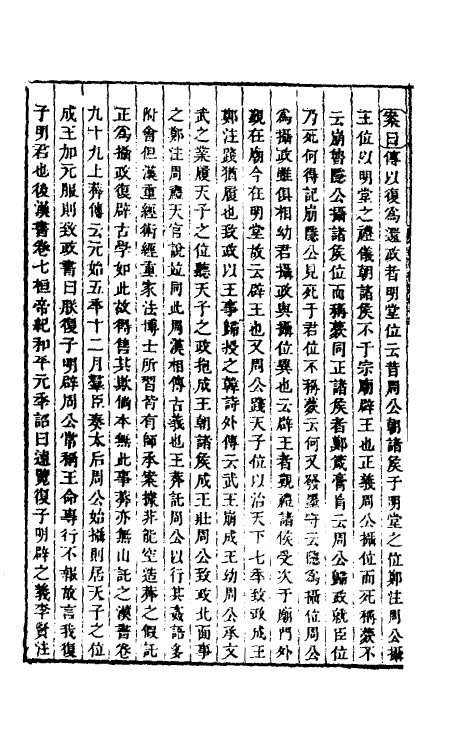 案曰傳以復為還政者明堂位云昔周公朝諸矦于明堂之位鄭注周公攝
王位以明堂之禮儀朝諸矦不于宗廟辟王也正義周公攝位而死稱薨不
云崩魯隱公攝諸矦位而稱薨同正諸矦者鄭箴膏肓云周公歸政就臣位
乃死何得記崩隱公見死于君位不稱薨云何又發墨守云隱為攝位周公
為攝政雖俱相幼君攝政與攝位異也云辟王者覲禮諸矦受次于廟門外
覲在廟今在明堂故云辟王也又周公踐天子位以治天下七年致政成王
鄭注踐猶履也致政以王事歸授之韓詩外傳云武王崩成王幼周公承文
武之業履天子之位聽天子之政抱成王朝諸矦成王壯周公致政北面事
之鄭注周禮天官說竝同此周漢相傳古義也王莽託周公以行其姦語多
附會但漢重經術經重家法博士所習皆有師承案據非能空造莽之假託
正為攝政復辟古學如此故得售其欺倘本無此事莽亦無由託之漢書卷
九十九上莽傳云元始五年十二月羣臣奏太后周公始攝則居天子之位
成王加元服則致政書曰朕復子明辟周公常稱王命專行不報故言我復
子明君也後漢書卷七桓帝紀和平元年詔曰遠覽復子明辟之義李賢注